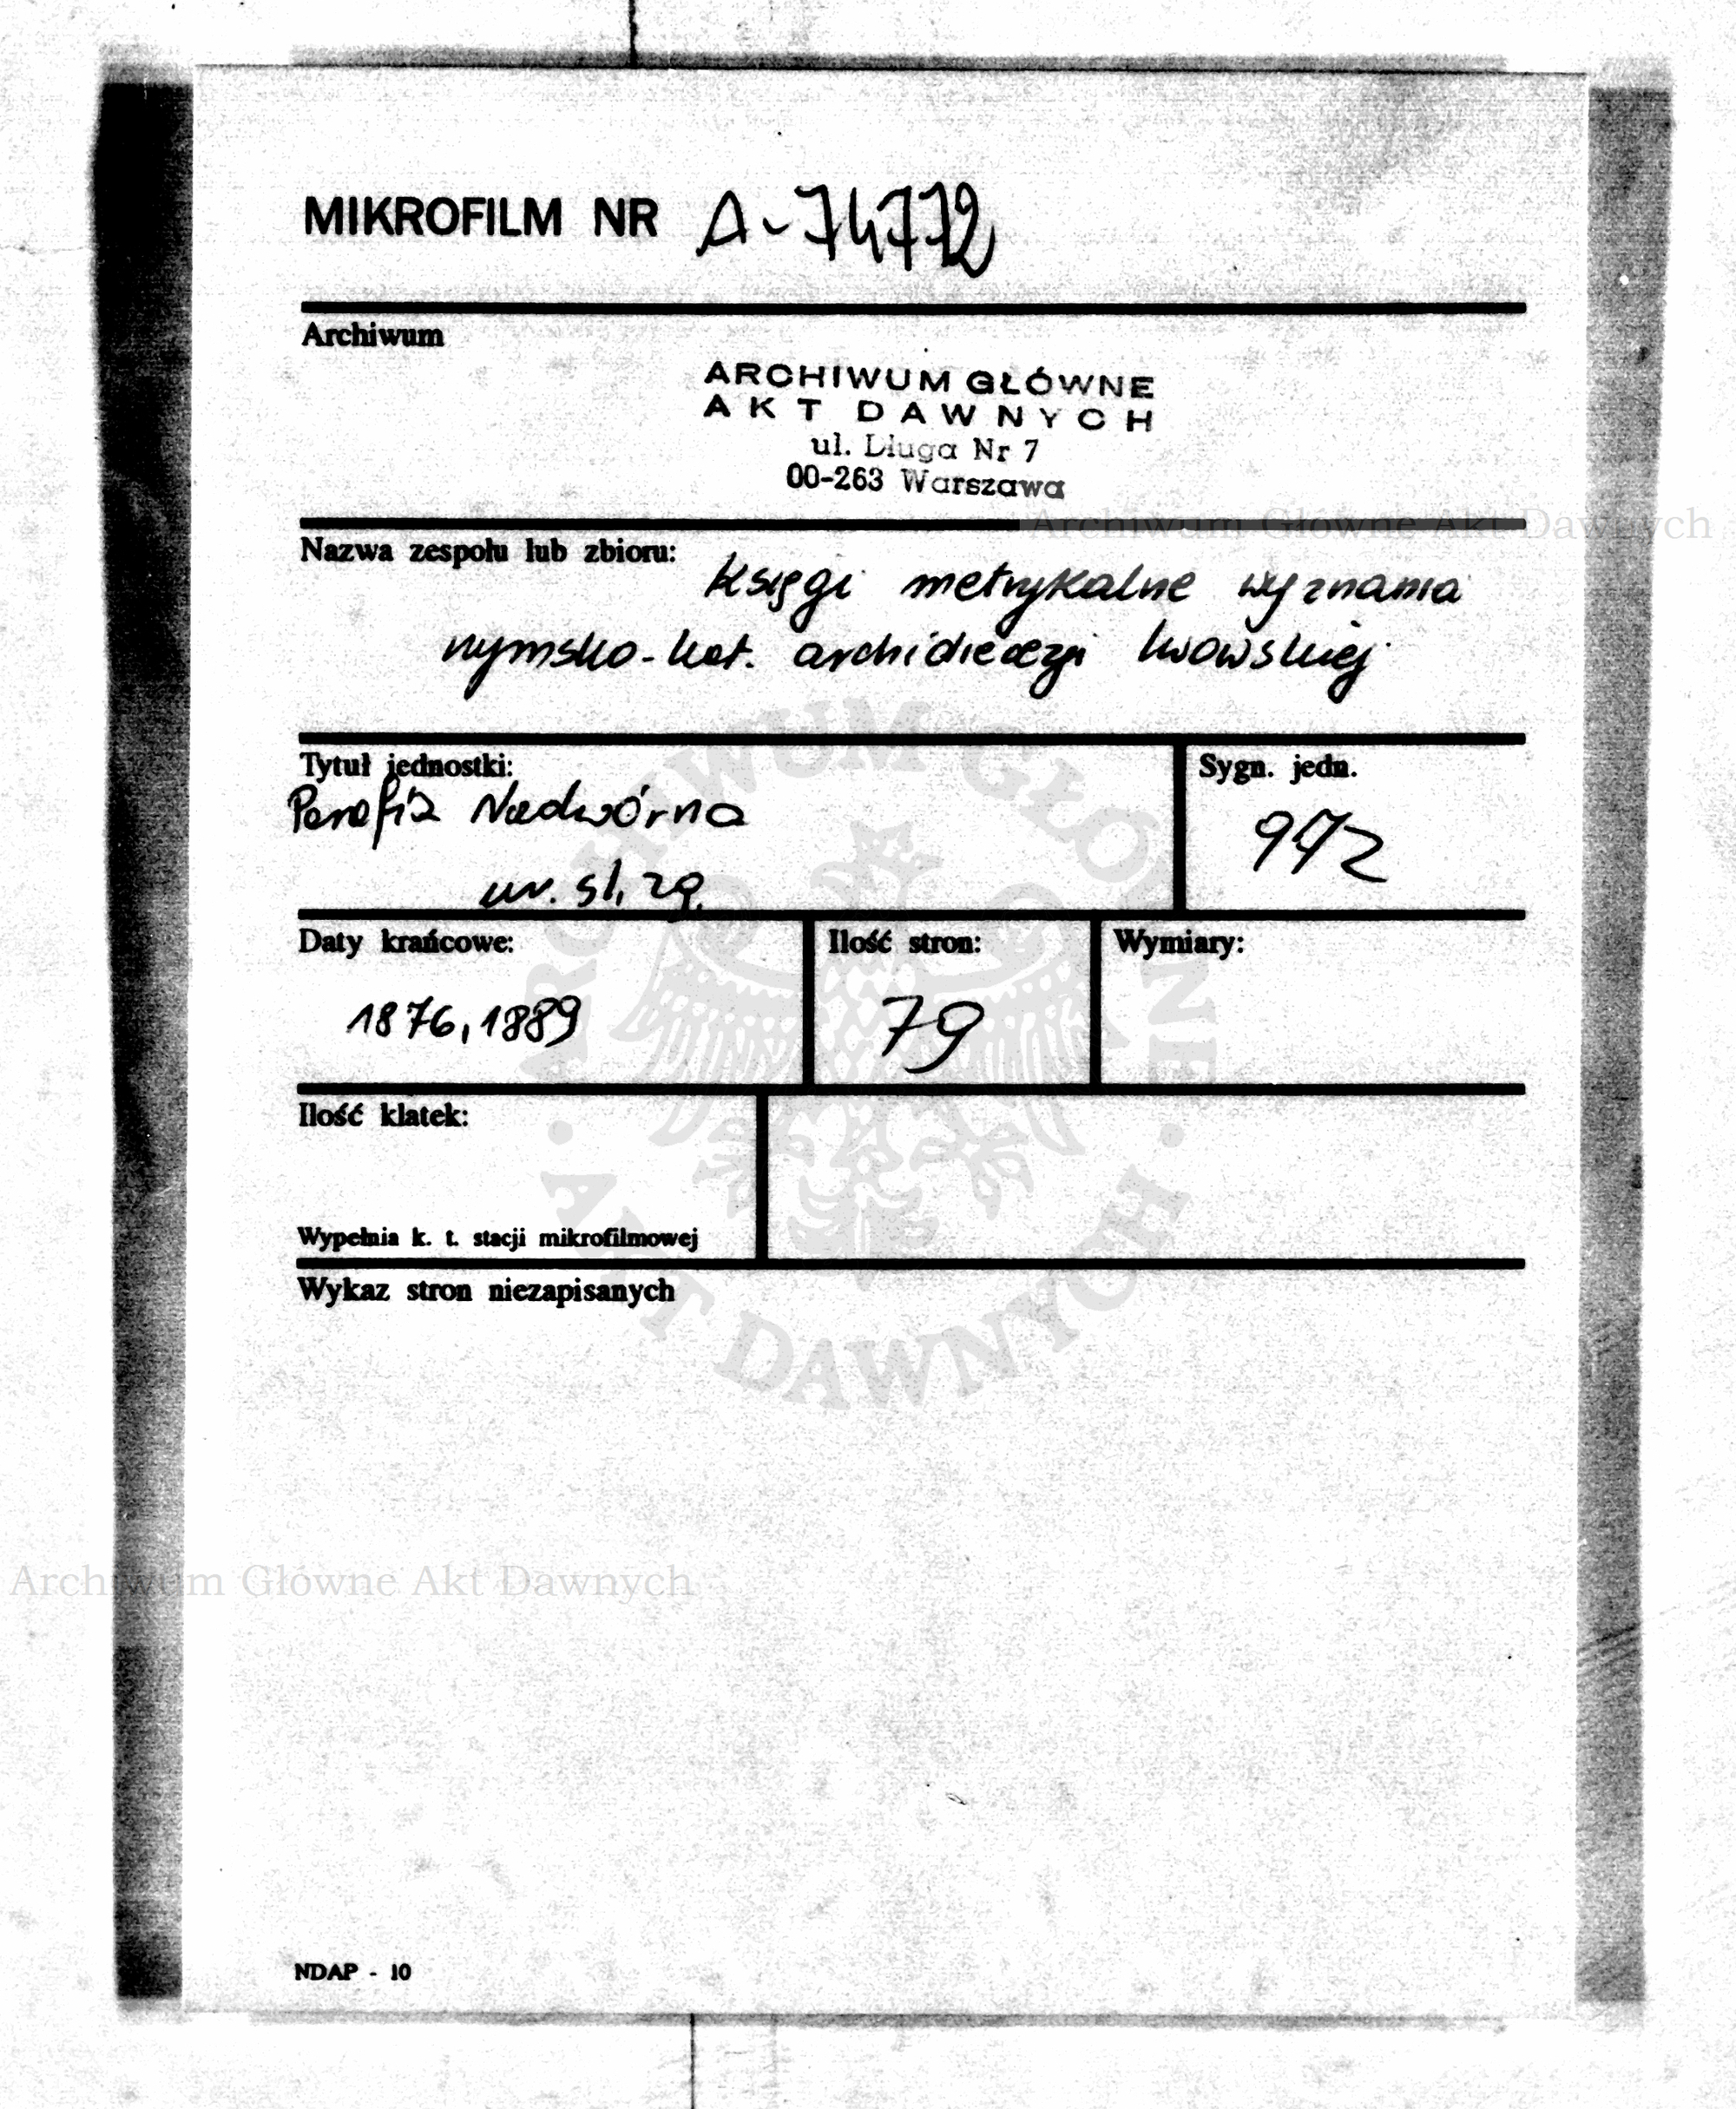 MIKROFILM NR A-74772
Archiwum
ARCHIWUM GŁÓWNE
AKT DAWNYCH
ul. Długa Nr 7
00-263 Warszawa
Archiwum Główne Akt Dawnych
Nazwa zespołu lub zbioru:
Księgi metrykalne wyznania
rzymsko-kat. archidiecezji lwowskiej
Tytuł jednostki:
Parafia Nadwórna
ur. śl. zg.
Sygn. jedn.
972
Daty krańcowe:
1876, 1889
Ilość stron:
79
Wymiary:
Ilość klatek:
Wypełnia k. t. stacji mikrofilmowej
Wykaz stron niezapisanych
ARCHIWUM GŁÓWNE
AKT DAWNYCH
Archiwum Główne Akt Dawnych
NDAP - 10